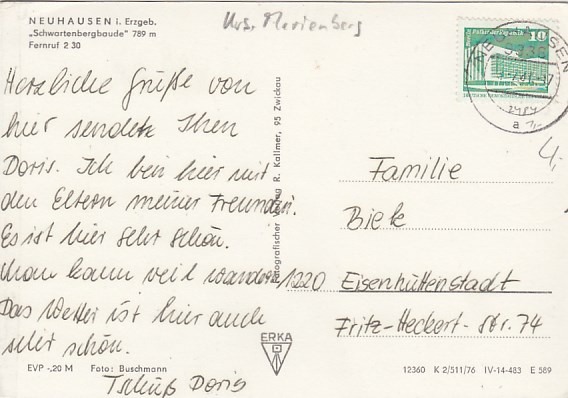 NEUHAUSEN i. Erzgeb.
„Schwartenbergbaude" 789 m
Fernruf 2 30
Krs. Marienberg
Herzliche Grüße von
hier sendete Ihnen
Doris. Ich bin hier mit
den Eltern meiner Freundin.
Es ist hier sehr schön.
Man kann viel wandern
Das Wetter ist hier auch
sehr schön.
Tschüß Doris
EVP -,20 M Foto: Buschmann
R. Kallmer, 95 Zwickau
ERKA
10
NEUHAUSEN
a
4,-
Familie
Biek
1220 Eisenhüttenstadt
Fritz-Heckert-Str. 74
12360 K 2/511/76 IV-14-483 E 589